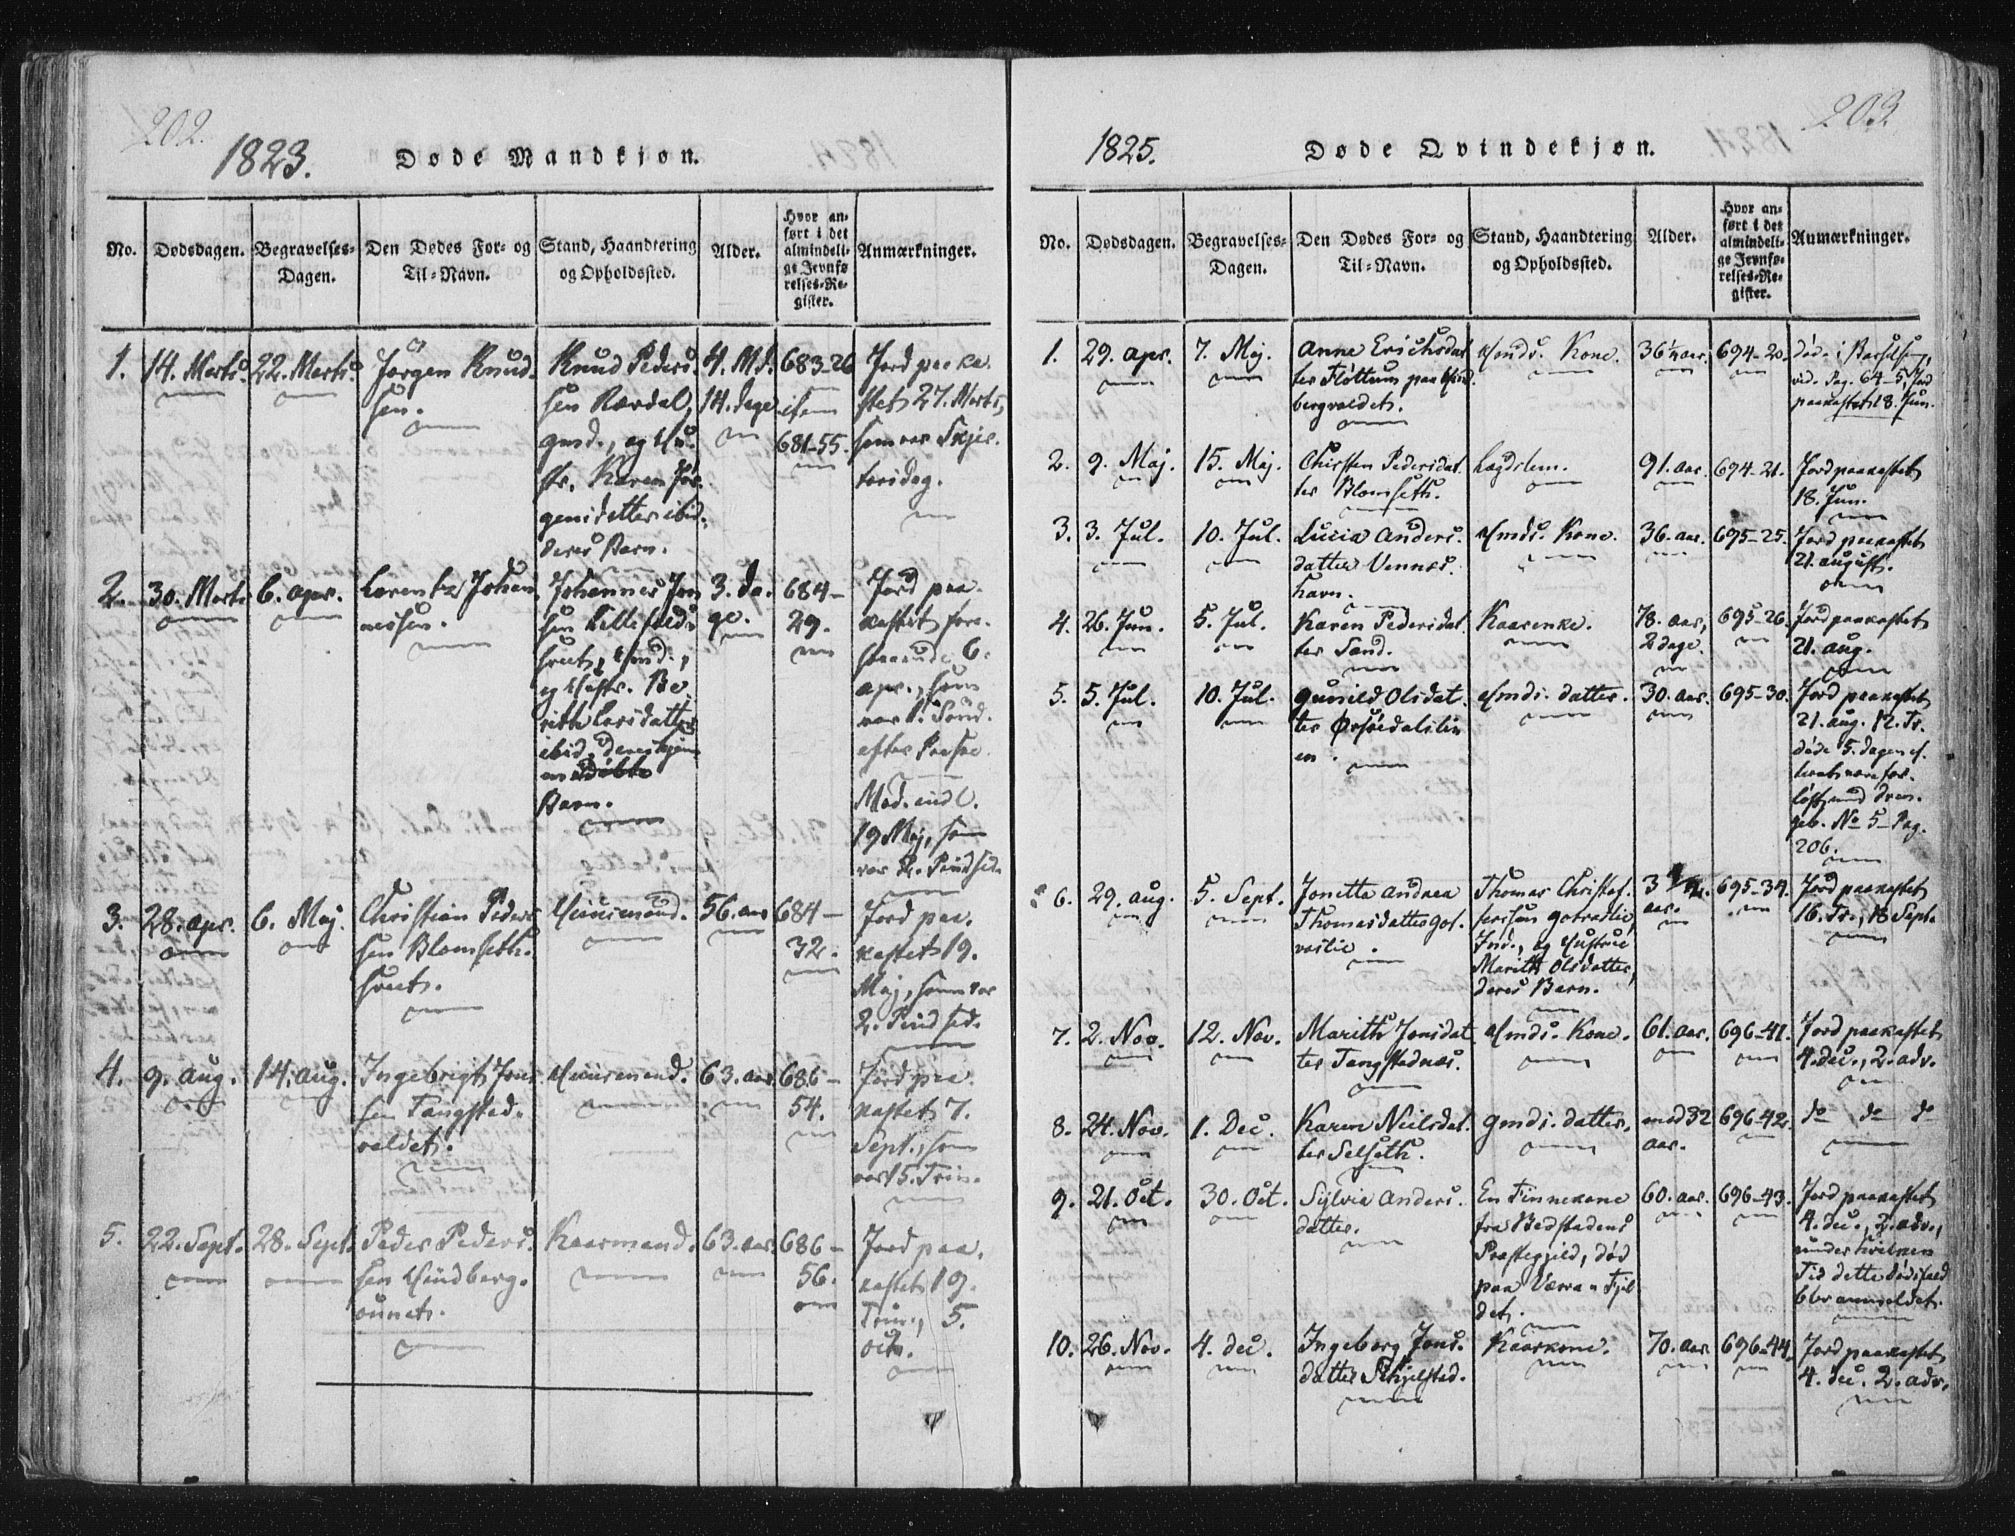 202.
1823.
Døde Mandkjøn.
No.
Dødsdagen.
Begravelses-
Dagen.
Den Dødes For- og
Til-Navn.
Stand, Haandtering
og Opholdssted.
Alder.
Hvor an-
ført i det
almindeli-
ge Jevnfø-
relses-Re-
gister.
Anmærkninger.
1.
14. Marts.
22. Marts.
Jørgen Knud-
sen.
Knud Peders-
sen
gmd., og Hu-
str. Karen Jør-
gensdatter ibid.
deres Barn.
4. Md.
14. dage
683-26
item
681-55.
Jord paaka-
stet 27. Marts,
som var Skjær-
torsdag.
2.
30. Marts
6. apr.
Lorentz Johan-
nessen.
Johannes Jon
sen
3. da-
ge.
684-
29.
Jord paa-
kastet
6.
apr., som
var 1. Sønd.
efter Paaske.
19 Maj, som
var 2. Pindsed.
Barn.
3.
28. apr.
6. Maj.
Christian Peder-
sen Blomseth-
hvet.
Huusmand.
56. aar
684-
32.
Jord paa-
kastet 19.
Maj, som var
2. Pindsed.
4.
9. aug.
14. aug.
Ingebrigt Jon-
sen Tangstad-
valdet.
Huusmand.
63. aar
686-
54.
Jord paa-
kastet 7.
Sept., som
var 15. Trin.
5.
22. Sept.
28. Sept.
Peder Peders-
sen Hindberg-
ounet.
Kaarmand.
63. aar
686-
56.
Jord paa-
kastet 19.
Trin., 5.
oct.
203
1825.
Døde Qvindekjøn.
No.
Dødsdagen.
Begravelses-
Dagen.
Den Dødes For- og
Til-Navn.
Stand, Haandtering
og Opholdssted.
Alder.
Hvor an-
ført i det
almindeli-
ge Jevnfø-
relses-Re-
gister.
Anmærkninger.
1.
29. apr.
7. Maj.
Anne Erichsdat-
ter Fløttum paa Hind-
bergvaldet.
Hmds. Kone.
36½ aar.
694-20.
døde i Barselseng,
vid. Pag. 64-5. Jord
paakastet 18. Jun.
2.
9. Maj.
15. Maj.
Chirsten Pedersdat-
ter Blomseth.
Lægdslem.
91. aar.
694-21.
Jord paakastet
18. Jun.
3.
3. Jul.
10. Jul.
Lucia Anders-
datter Vennes-
havn.
Hmds. Kone.
36. aar.
695-25.
Jord paakastet
21. august.
4.
26. Jun.
5. Jul.
Karen Pedersdat-
ter Sand.
Kaarenke.
78. aar,
2 dage
695-26.
Jord paakastet
21. aug.
5.
5. Jul.
10. Jul.
Gunild Olsdat-
ter
en.
Hmds. datter.
30. aar.
695-30.
Jord paakastet
21. aug. 12. Tr.
døde 5. dagen ef-
løst med dren-
geb. No 5- Pag.
206.
6.
29. aug.
5. Sept.
Jonetta Andrea
Thomasdatter Got-
vaslie.
Thomas Christof-
fersen Gotvaslie,
Ind., og Hustrue
Marith Olsdatter,
deres Barn.
aar.
695-34.
Jord paakastet
16. Tr., 18 Sept.
7.
2. Nov.
12. Nov.
Marith Jonsdat-
ter Tangstadnæs.
Hmds. Kone.
61. aar.
696-41.
Jord paakastet
4. dec., 2. adv.
8.
24. Nov.
1. Dec.
Karen Nielsdat-
ter Selseth.
Gmds. datter.
mod 32
aar.
696-42.
do do do
9.
21. Oct.
30. Oct.
Sylvia Anders-
datter.
En Finnekone
fra Bedstadens
Præstegjeld, død
paa Værra-Fjel-
det.
60. aar.
696-43.
Jord paakastet
4. dec., 2. adv.,
under hvilken
Tid dette dødsfald
blev anmeldet.
10.
26. Nov.
4. dec.
Ingeborg Jons-
datter Skjelstad.
Kaarkone.
70. aar.
696-44.
Jord paakastet
4. dec. 2. adv.